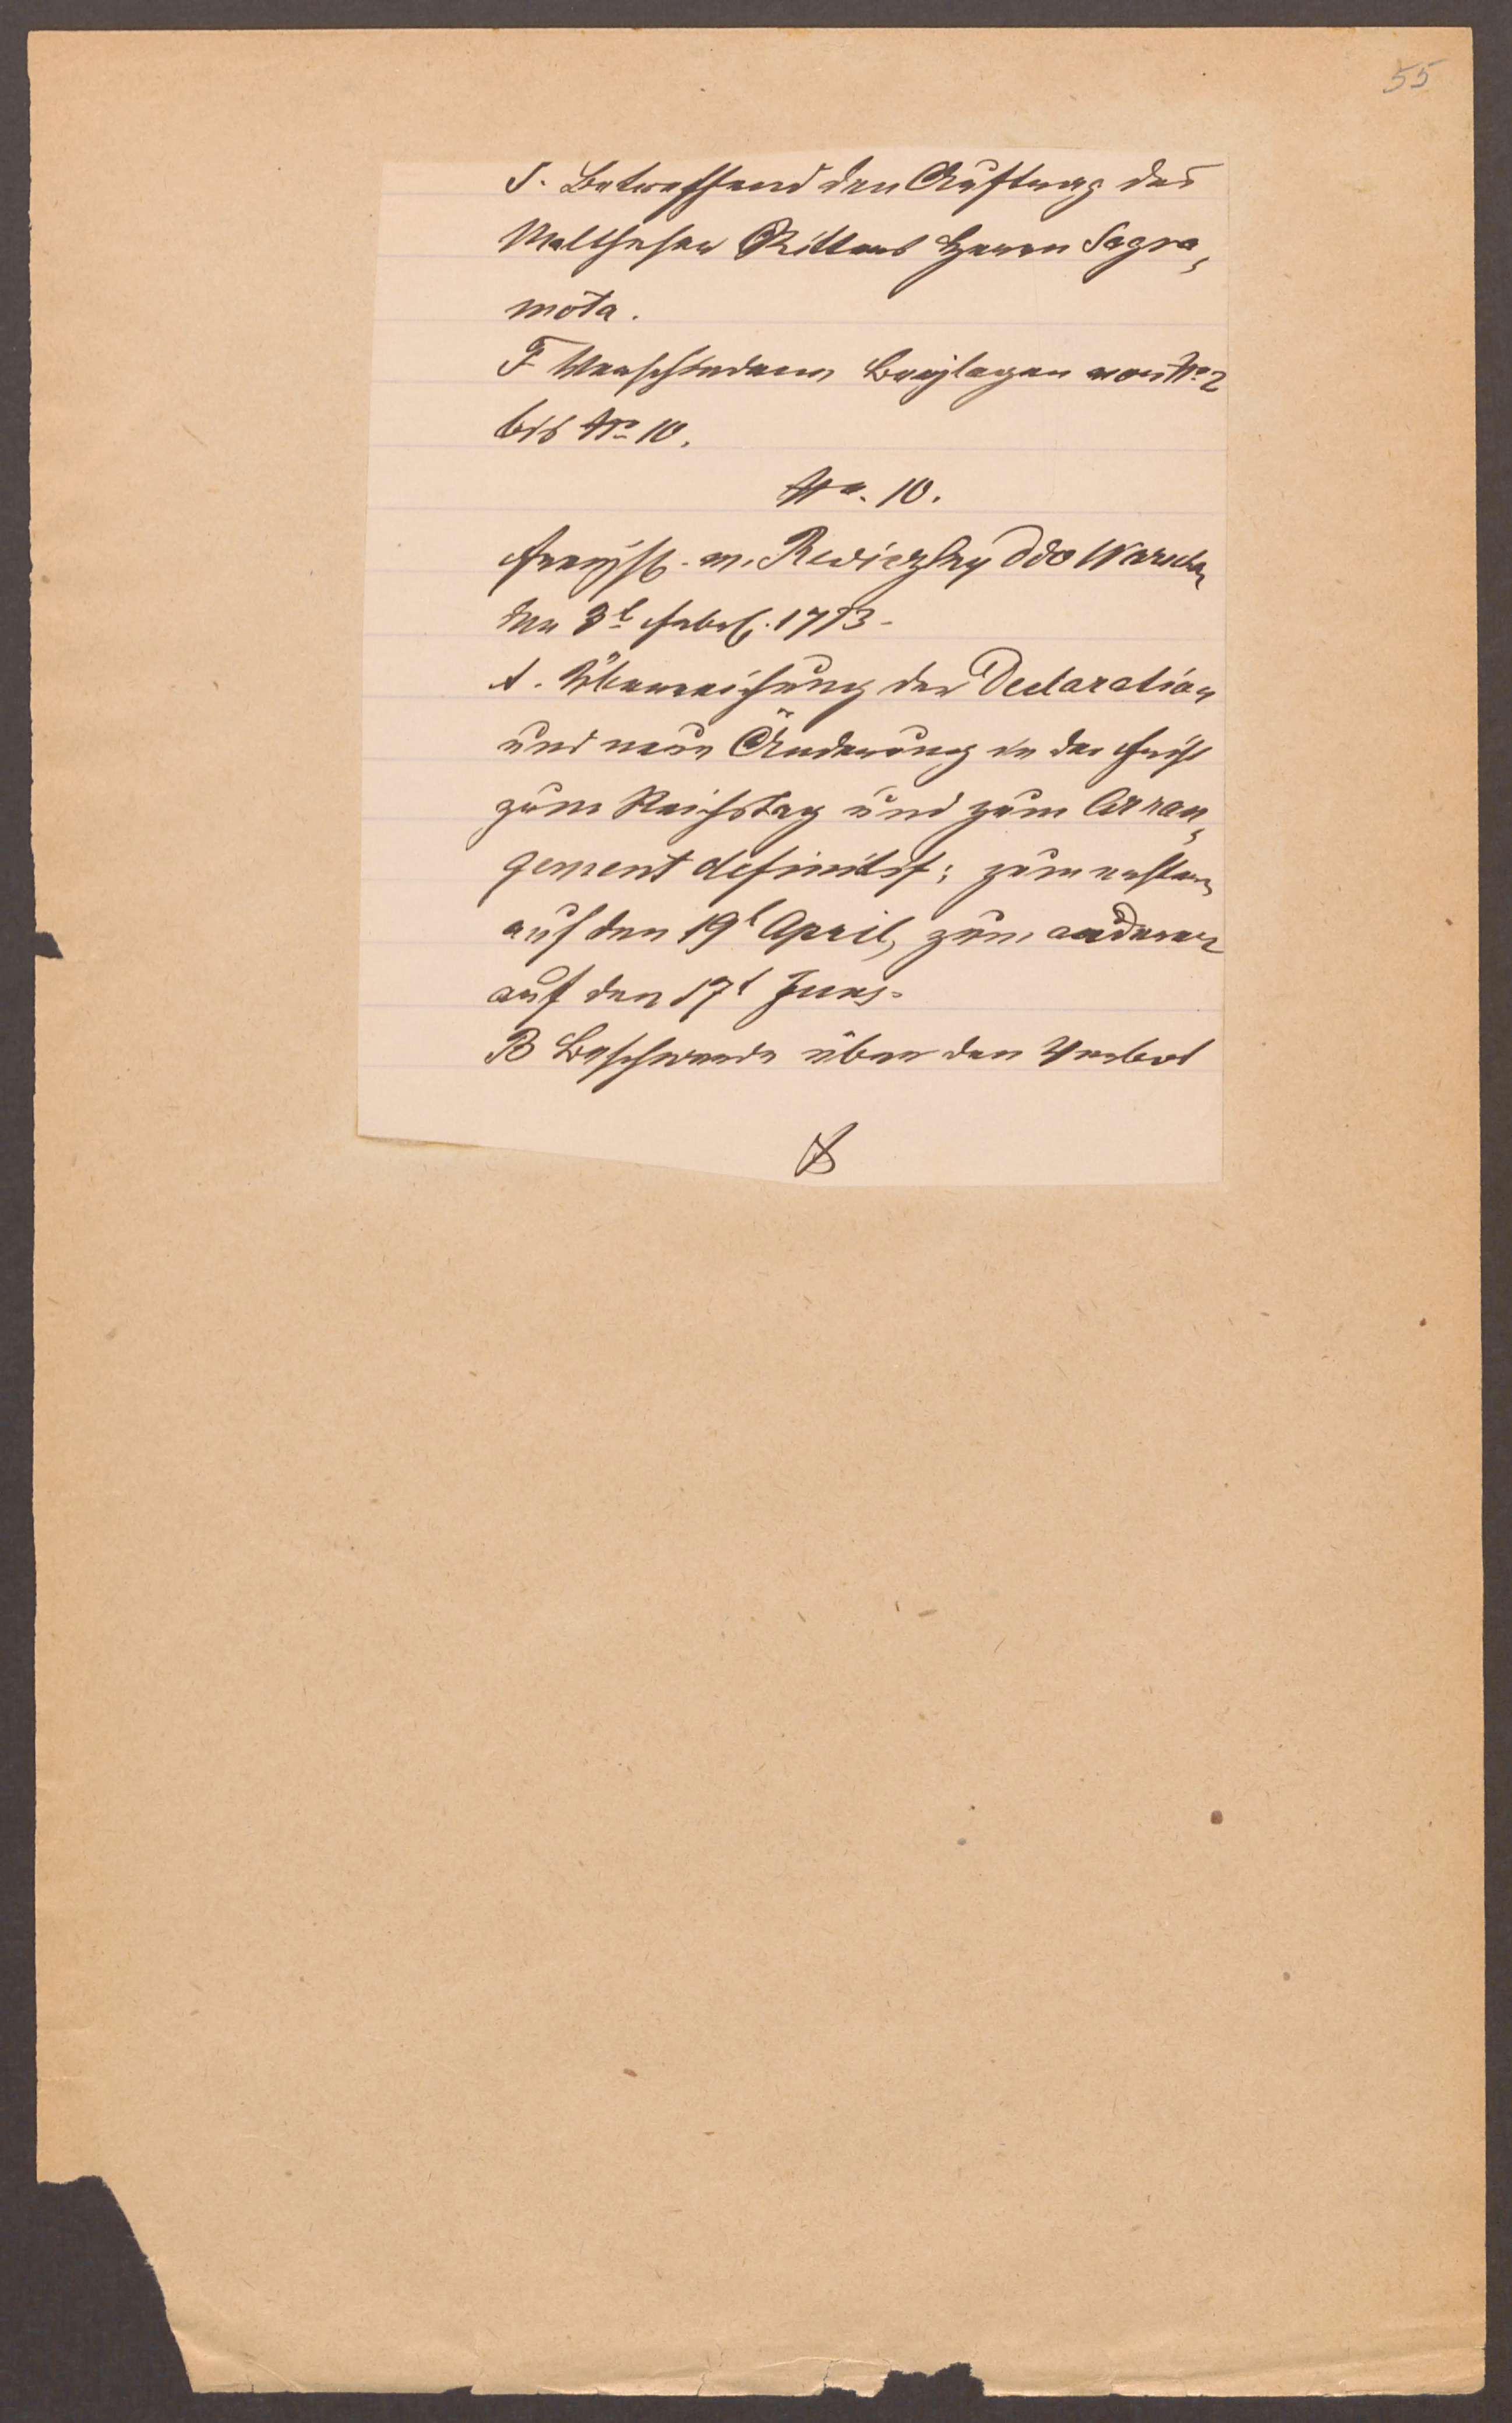 55
S. Betreffend den Auftrag des
Maltheser Ritters Herrn Sagra,
mota.
F Verschiedene Beylagen von Nro 2
bis Nro 10.
Nro. 10.
Freyh. v. Reviczky ddo Warschau
den 3t Febr. 1773.
A. Überreichung der Declaration
und neue Änderung in der Frist
zum Reichstag und zum Arran,
gement definitif; zum ersten
auf den 19t April, zum anderen
auf den 17t Juny.
B Beschwerde über den Verbot